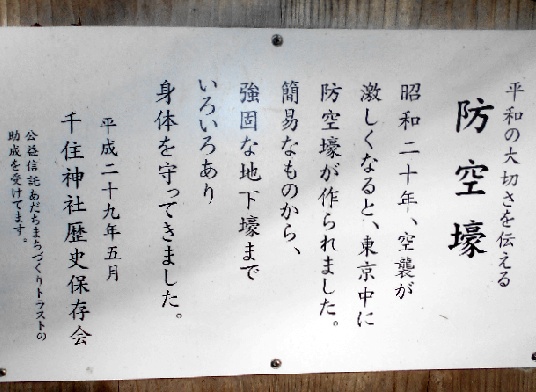 平和の大切さを伝える
防空壕
昭和二十年、空襲が
激しくなると、東京中に
防空壕が作られました。
簡易なものから、
強固な地下壕まで
いろいろあり
身体を守ってきました。
平成二十九年五月
千住神社歴史保存会
公益信託あだちまちづくりトラストの
助成を受けてます。